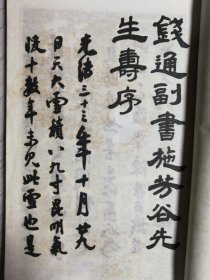 錢通副書施芳谷先
生壽序
光緒三十三年十月廿九
日天大雪積八九寸昆明氣
後十數年未見此雪也是